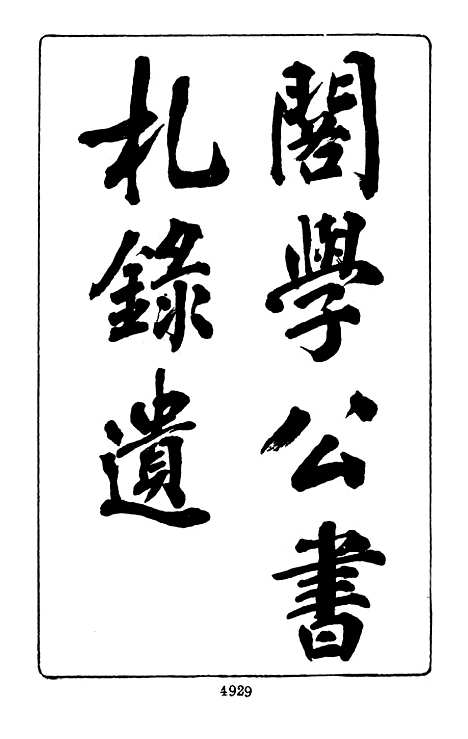 閣學公書
札錄遺
4929